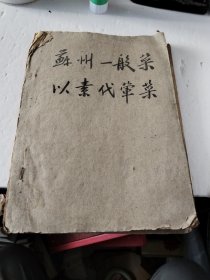 蘇州一般菜
以素代葷菜